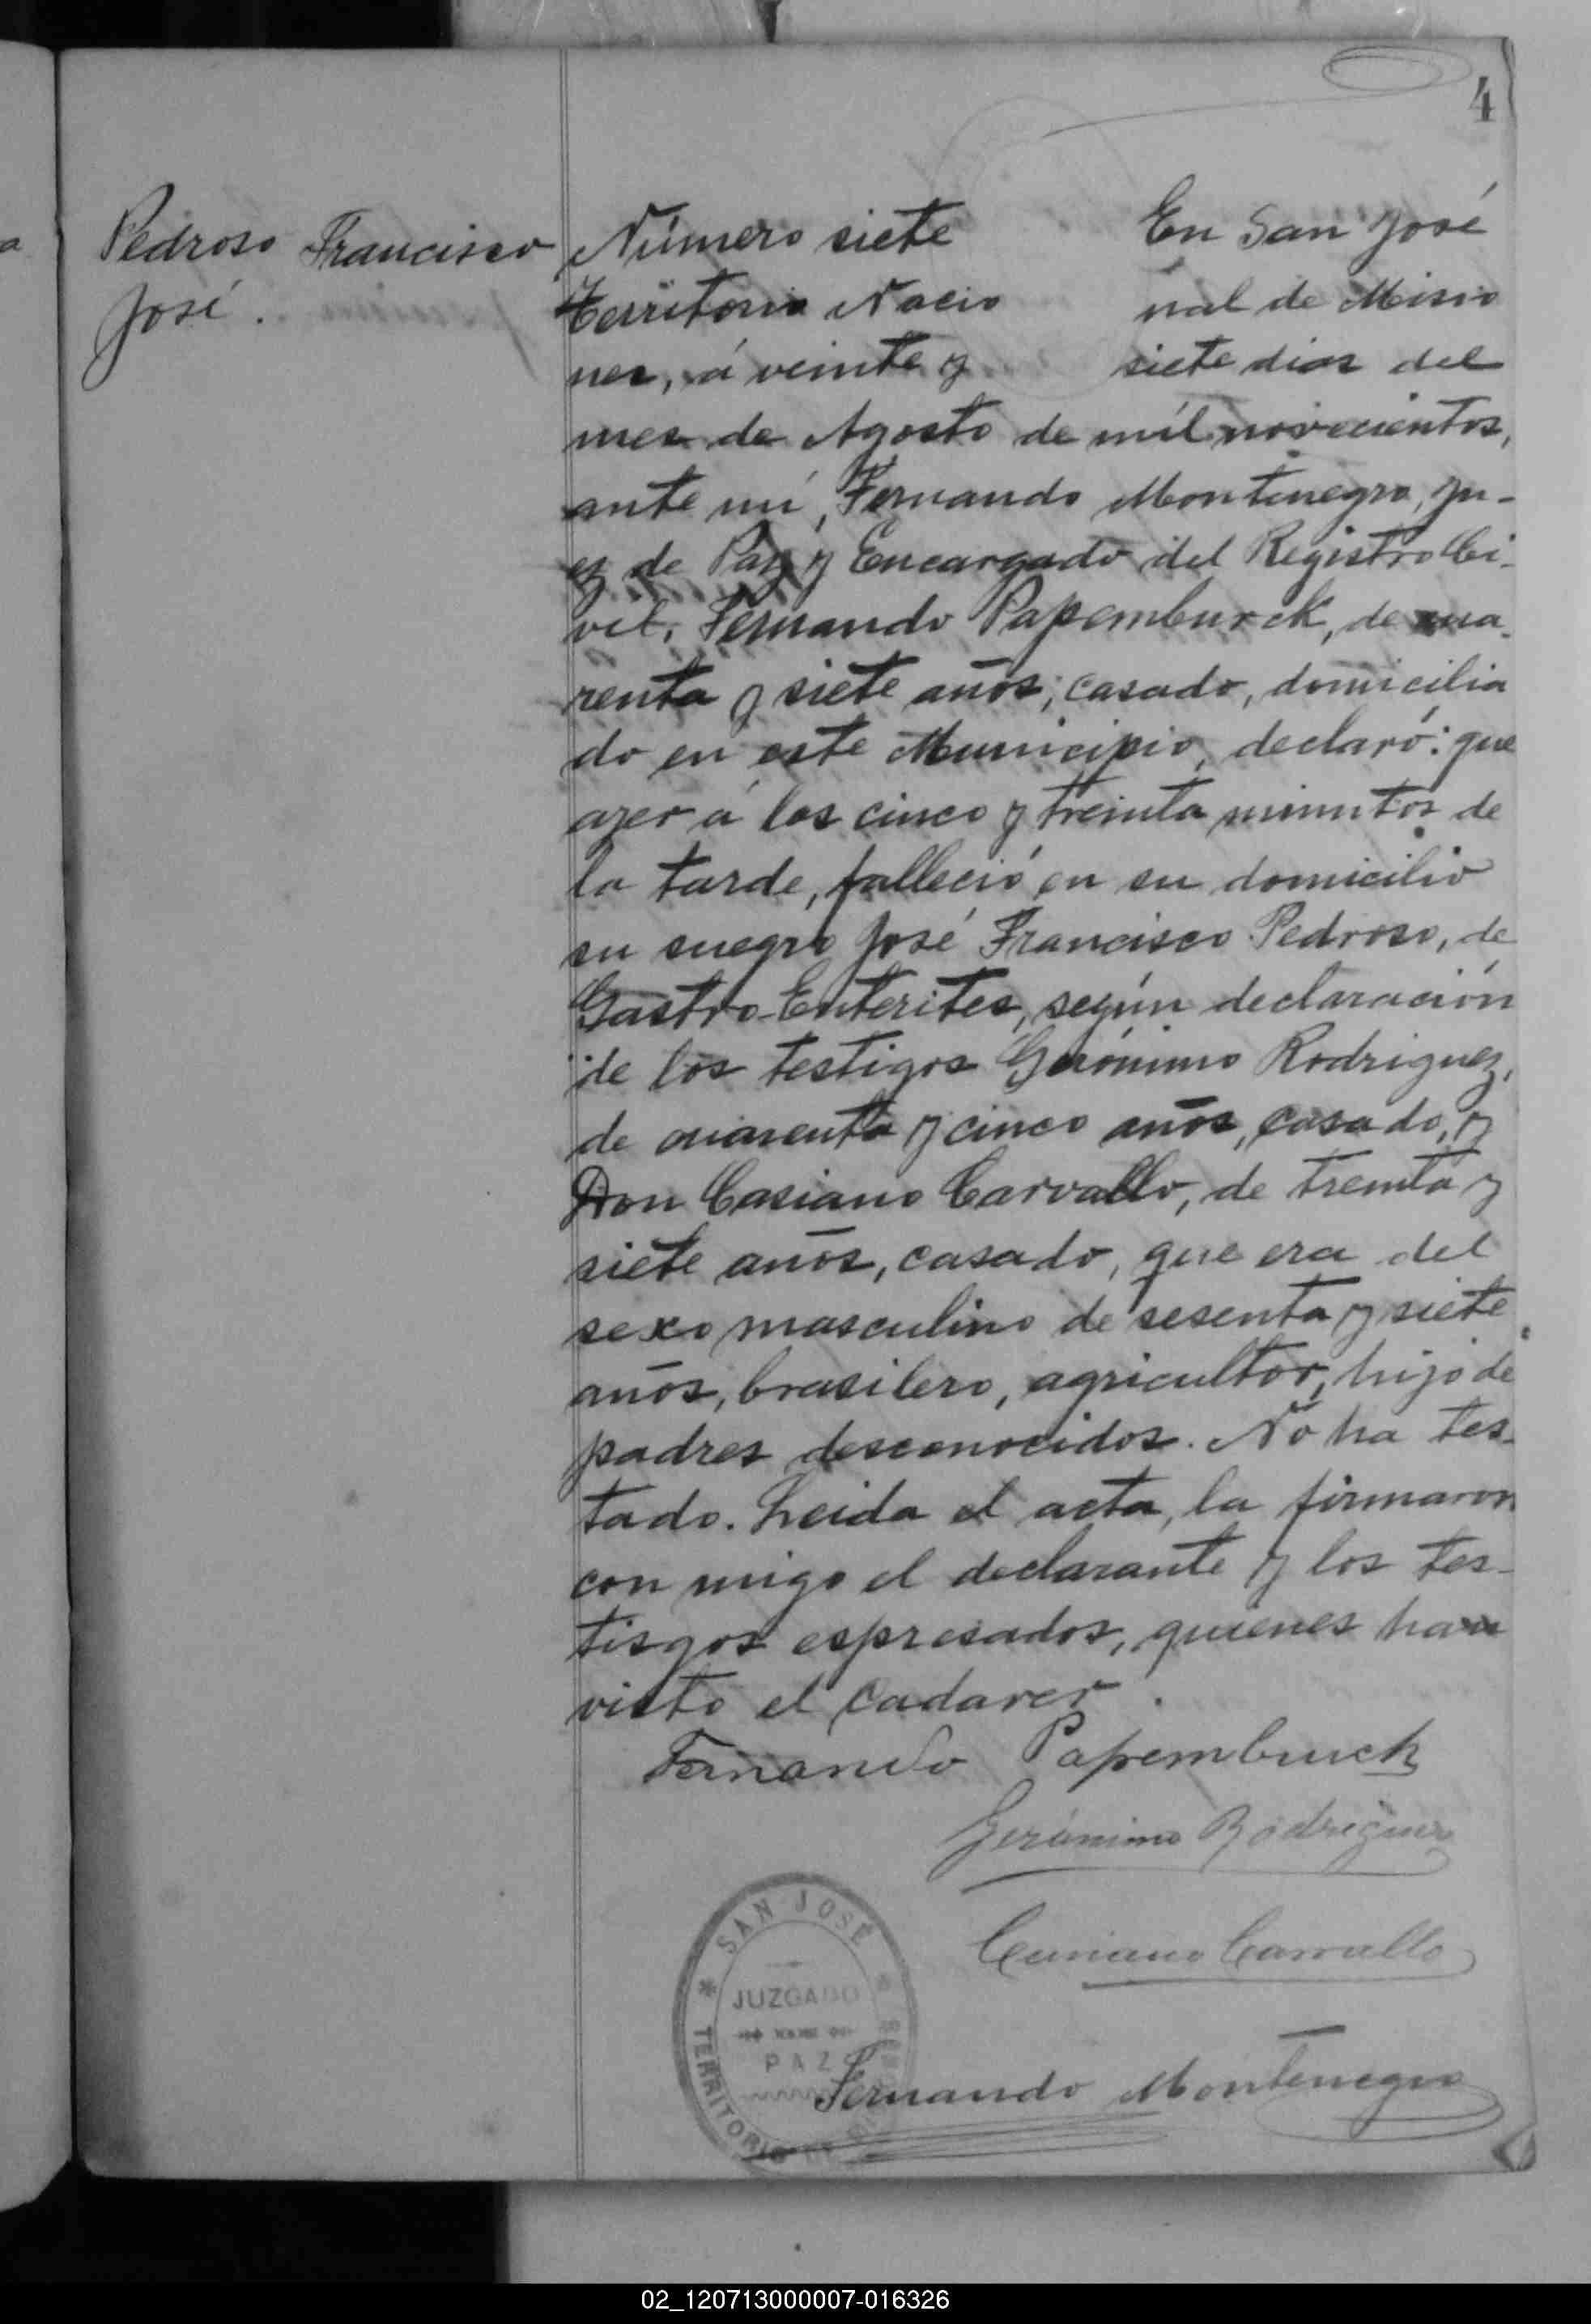 4
Pedroso Francisco
José.
Número siete En San José
Territorio Nacio nal de Misio
nes, á veinte y siete dias del
mes de Agosto de mil novecientos,
ante mi, Fernando Montenegro, Ju-
ez de Paz y Encargado del Registro Ci-
vil, Fernando Papemburck, de cua-
renta y siete años, casado, domicilia
do en este Municipio, declaró: que
ayer á las cinco y treinta minutos de
la tarde, falleció en su domicilio
su suegro José Francisco Pedroso, de
Gastro-Enterites, según declaración
de los testigos Gerónimo Rodriguez,
de cuarenta y cinco años, casado, y
Don Casiano Carvallo, de treinta y
siete años, casado, que era del
sexo masculino de sesenta y siete
años, brasilero, agricultor, hijo de
padres desconocidos. No ha tes-
tado. Leida el acta, la firmaron
con migo el declarante y los tes-
tisgos espresados, quienes han
visto el cadaver.
Fernando Papembruck
Gerónimo Rodriguez
Carvallo
SAN JOSÉ
JUZGADO
PAZ
TERRITORIO DE
Fernando Montenegro
02_120713000007-016326